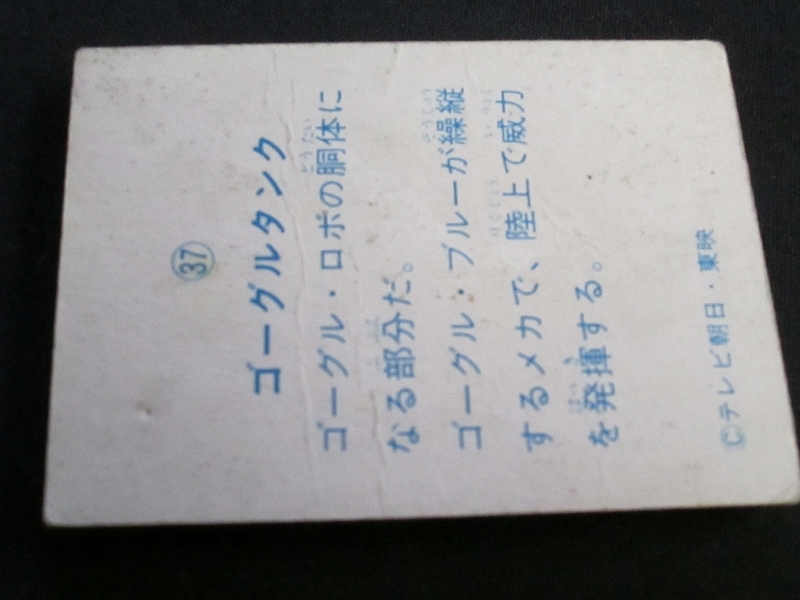 ㊲
ゴーグルタンク
ゴーグル・ロボの胴体に
なる部分だ。
ゴーグル・ブルーが操縦
するメカで、陸上で威力
を発揮する。
©テレビ朝日・東映